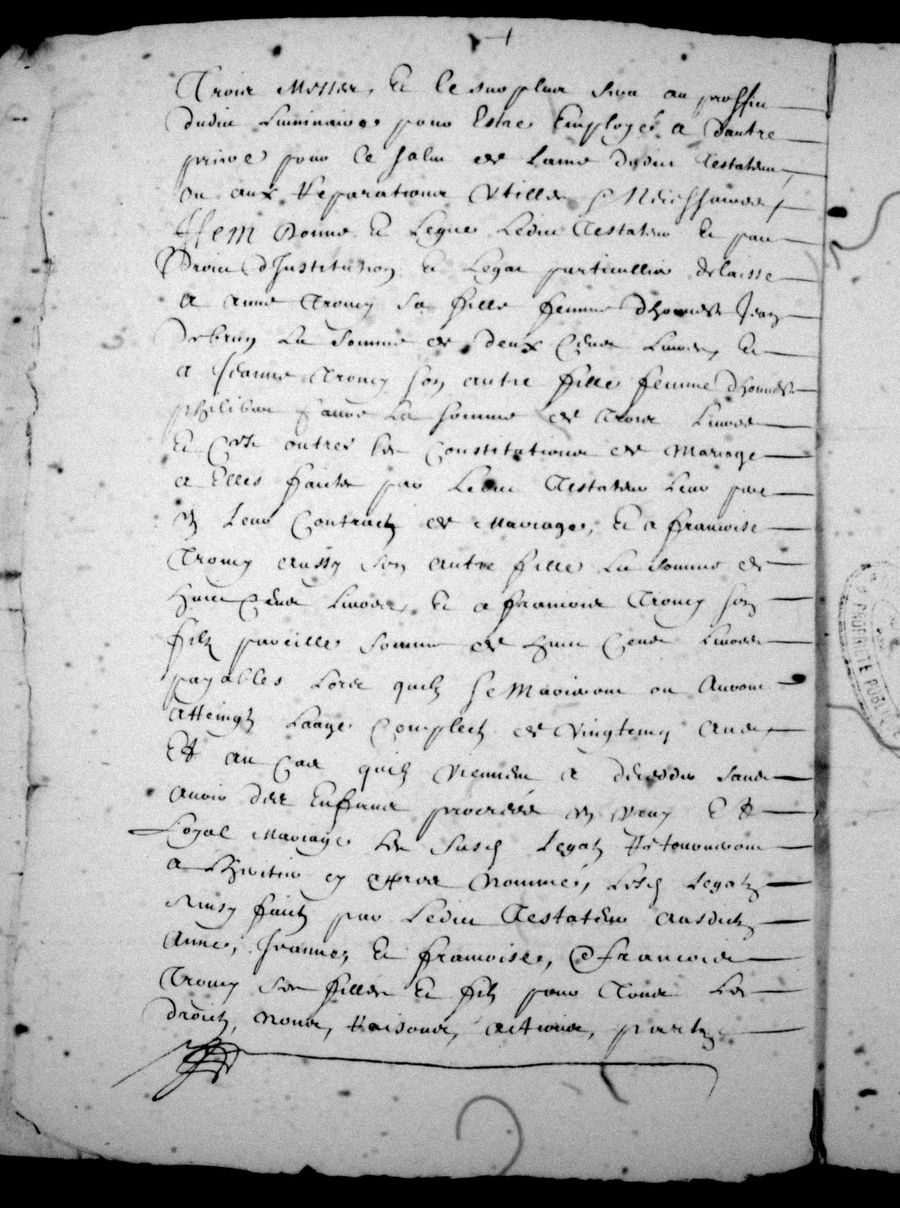 Trois Messes, Et le surplus sera au proffit
dudit Luminaire pour Estre Employé a dautre
priere pour le Salut de Lame dudit Testateur,
ou aux Reparations Utilles & Necessaires,
Item Donne Et Legue Ledit Testateur Et par
Droit dInstitution Et Legat particullier delaisse
a anne Troncy sa fille femme dhoneste Jean
Debrun La Somme de Deux Cens Livres, Et
a Jeanne Troncy son autre fille femme dhoneste
philibert favre La Somme de Trois Livres
Et Cest outre les Constitutions de Mariage
a Elles faictes par Ledit Testateur Leur pere
en Leur Contractz de Mariage, Et a francoise
Troncy aussy Son autre fille La Somme de
huict Cens Livres, Et a francois Troncy son
filz pareille Somme de huict Cens Livres
payables Lors quilz se Marieront ou Auront
atteingt Laage Complect de Vingtcinq Ans,
Et au Cas quilz Viennent a deceder sans
avoir des Enfans procréés en vray Et
Loyal Mariage Les Susd Legatz Retourneront
a Lheritier cy apres Nommé, Lesd Legatz
Ainsy faictz par Ledit Testateur Ausdictz
Anne, Jeanne, Et francoise, & francois
Troncy Ses filles Et filz pour Tous Les
droictz, Noms, Raisons, actions, partz
PROPRIETE PUBLI